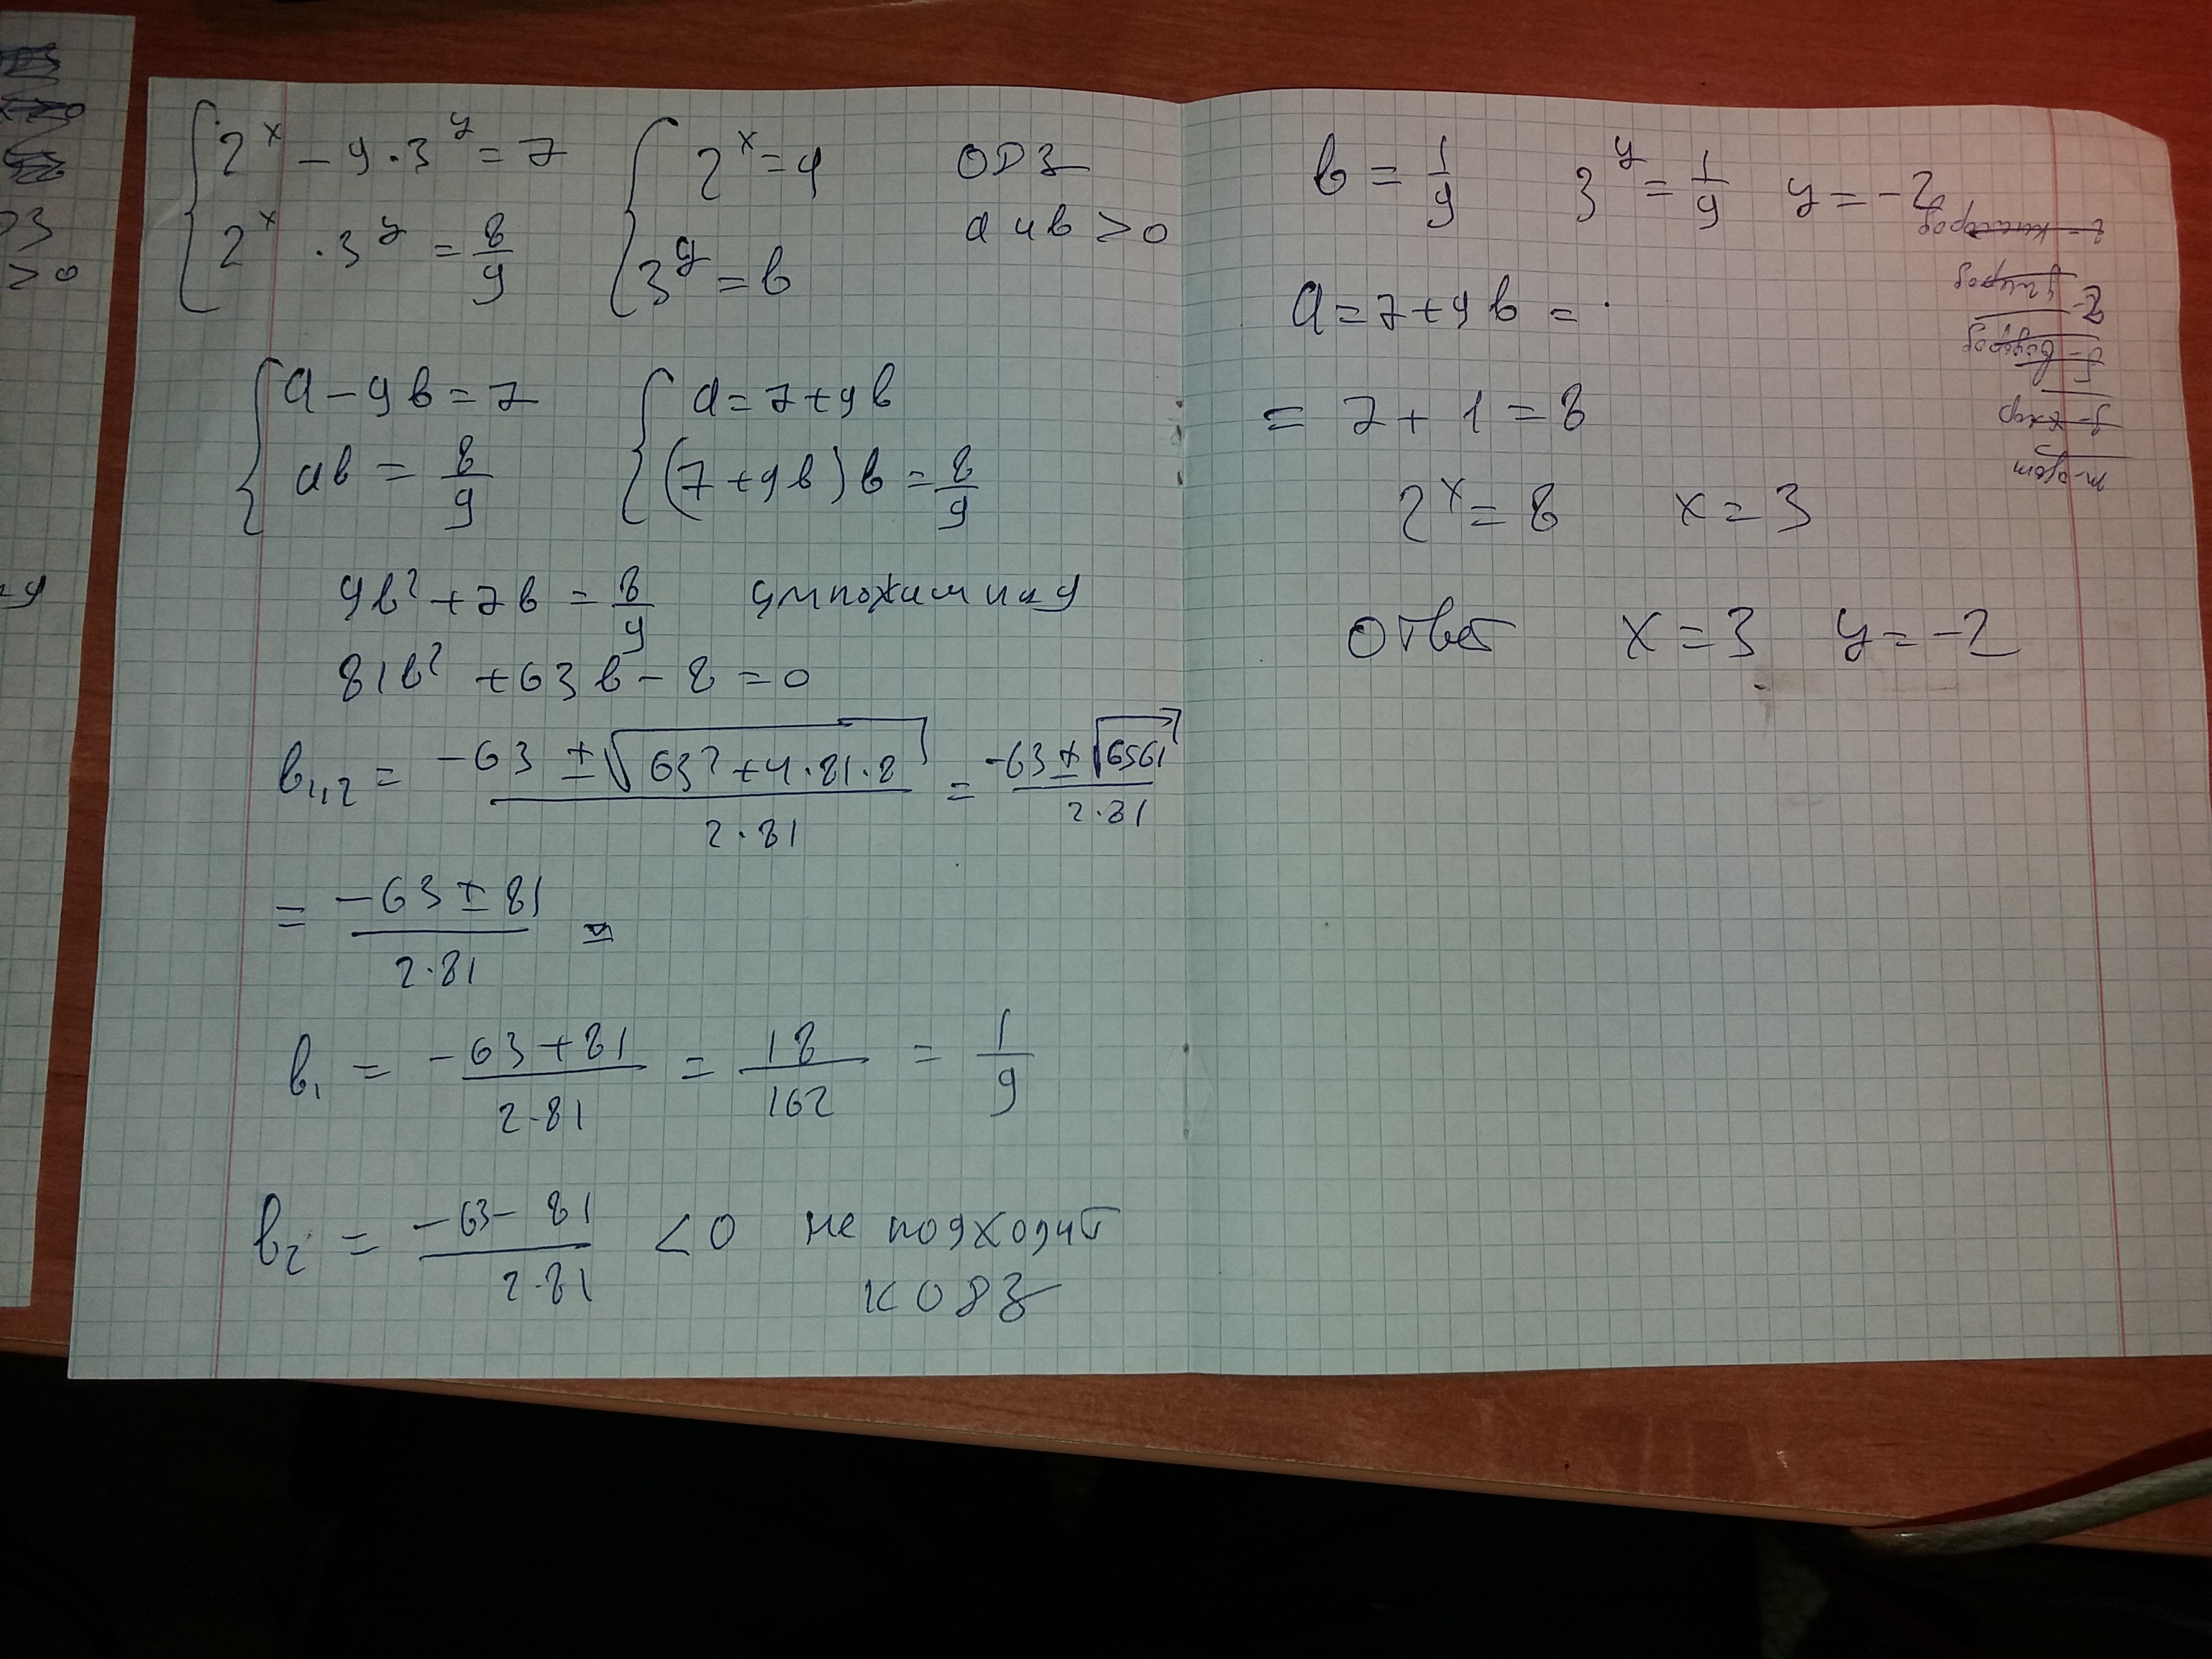 2ˣ − 9·3ʸ = 7
2ˣ · 3ʸ = 8/9
2ˣ = a
3ʸ = b
ОДЗ
a и b > 0
a − 9b = 7
ab = 8/9
a = 7 + 9b
(7 + 9b)b = 8/9
9b² + 7b = 8/9 умножим на 9
81b² + 63b − 8 = 0
b₁,₂ = (−63 ± √(63² + 4·81·8))/(2·81) = (−63 ± √6561)/(2·81)
= (−63 ± 81)/(2·81) =
b₁ = (−63 + 81)/(2·81) = 18/162 = 1/9
b₂ = (−63 − 81)/(2·81) < 0 не подходит
к ОДЗ
b = 1/9 3ʸ = 1/9 y = −2
a = 7 + 9b =
= 7 + 1 = 8
2ˣ = 8 x = 3
Ответ x = 3 y = −2
> 0